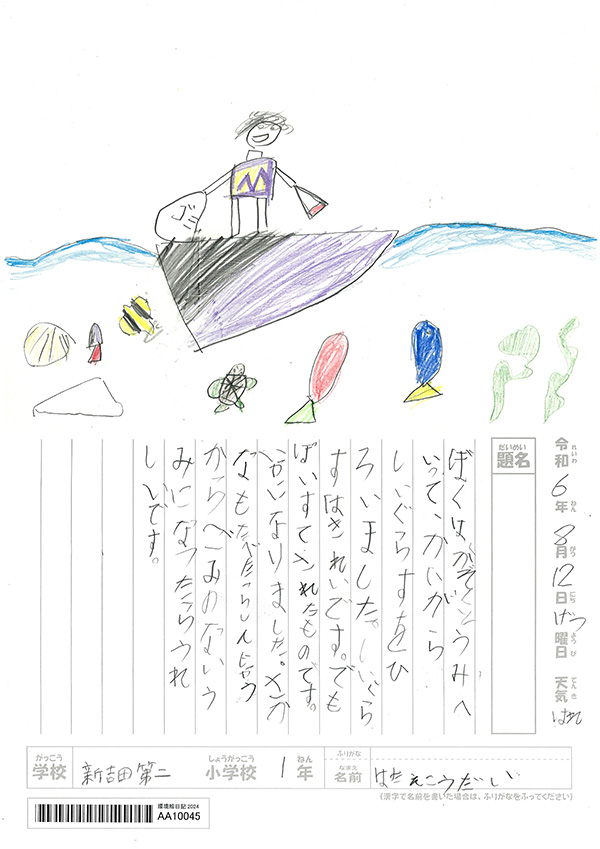 ゴミ
M
令和6年8月12日げつ曜日 天気はれ
れいわ ねん がつ にち ようび てんき
だいめい
題名
ぼくはかぞくとうみへ
いって、かいがら
しいぐらすをひ
ろいました。しいぐら
すはきれいです。でも
ぽいすてされたものです。
なりました。さか
なもたべたらしんじゃう
から、ごみのないう
みになったらうれ
しいです。
がっこう しょうがっこう ねん ふりがな
学校 新吉田第二 小学校 1年 なまえ 名前
(漢字で名前を書いた場合は、ふりがなをふってください)
環境絵日記2024
AA10045